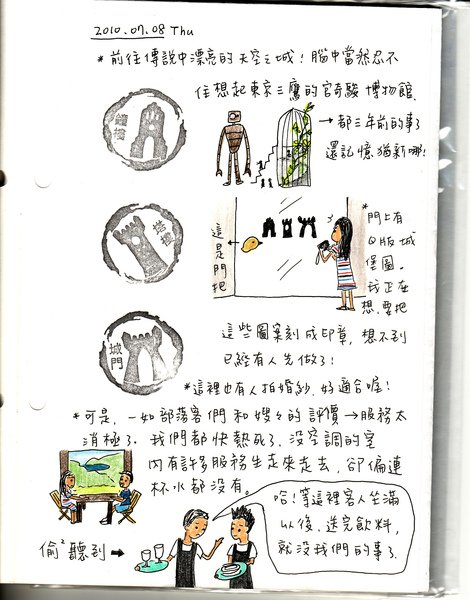 2010.07.08 Thu
*前往傳說中漂亮的天空之城!腦中當然忍不
住想起東京三鷹的宮奇駿博物館.
→都三年前的事了
還記憶猶新哪!
鐘樓
塔樓
城門
這是門把
*門上有
Q版城
堡圖。
我正在
想,要把
這些圖案刻成印章,想不到
已經有人先做了!
*這裡也有人拍婚紗,好適合喔!
*可是,一如部落客們和嫂々的評價→服務太
消極了.我們都快熱死了.沒空調的室
內有許多服務生走來走去,卻偏連
杯水都沒有。
偷²聽到➡
哈!等這裡客人坐滿
以後、送完飲料,
就沒我們的事了.